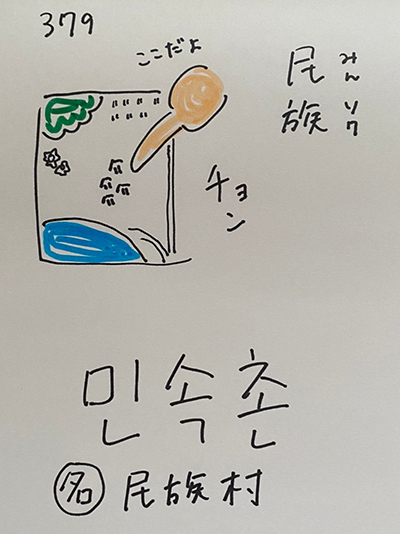 379
ここだよ
民族
みんゾク
チョン
민속촌
名 民族村